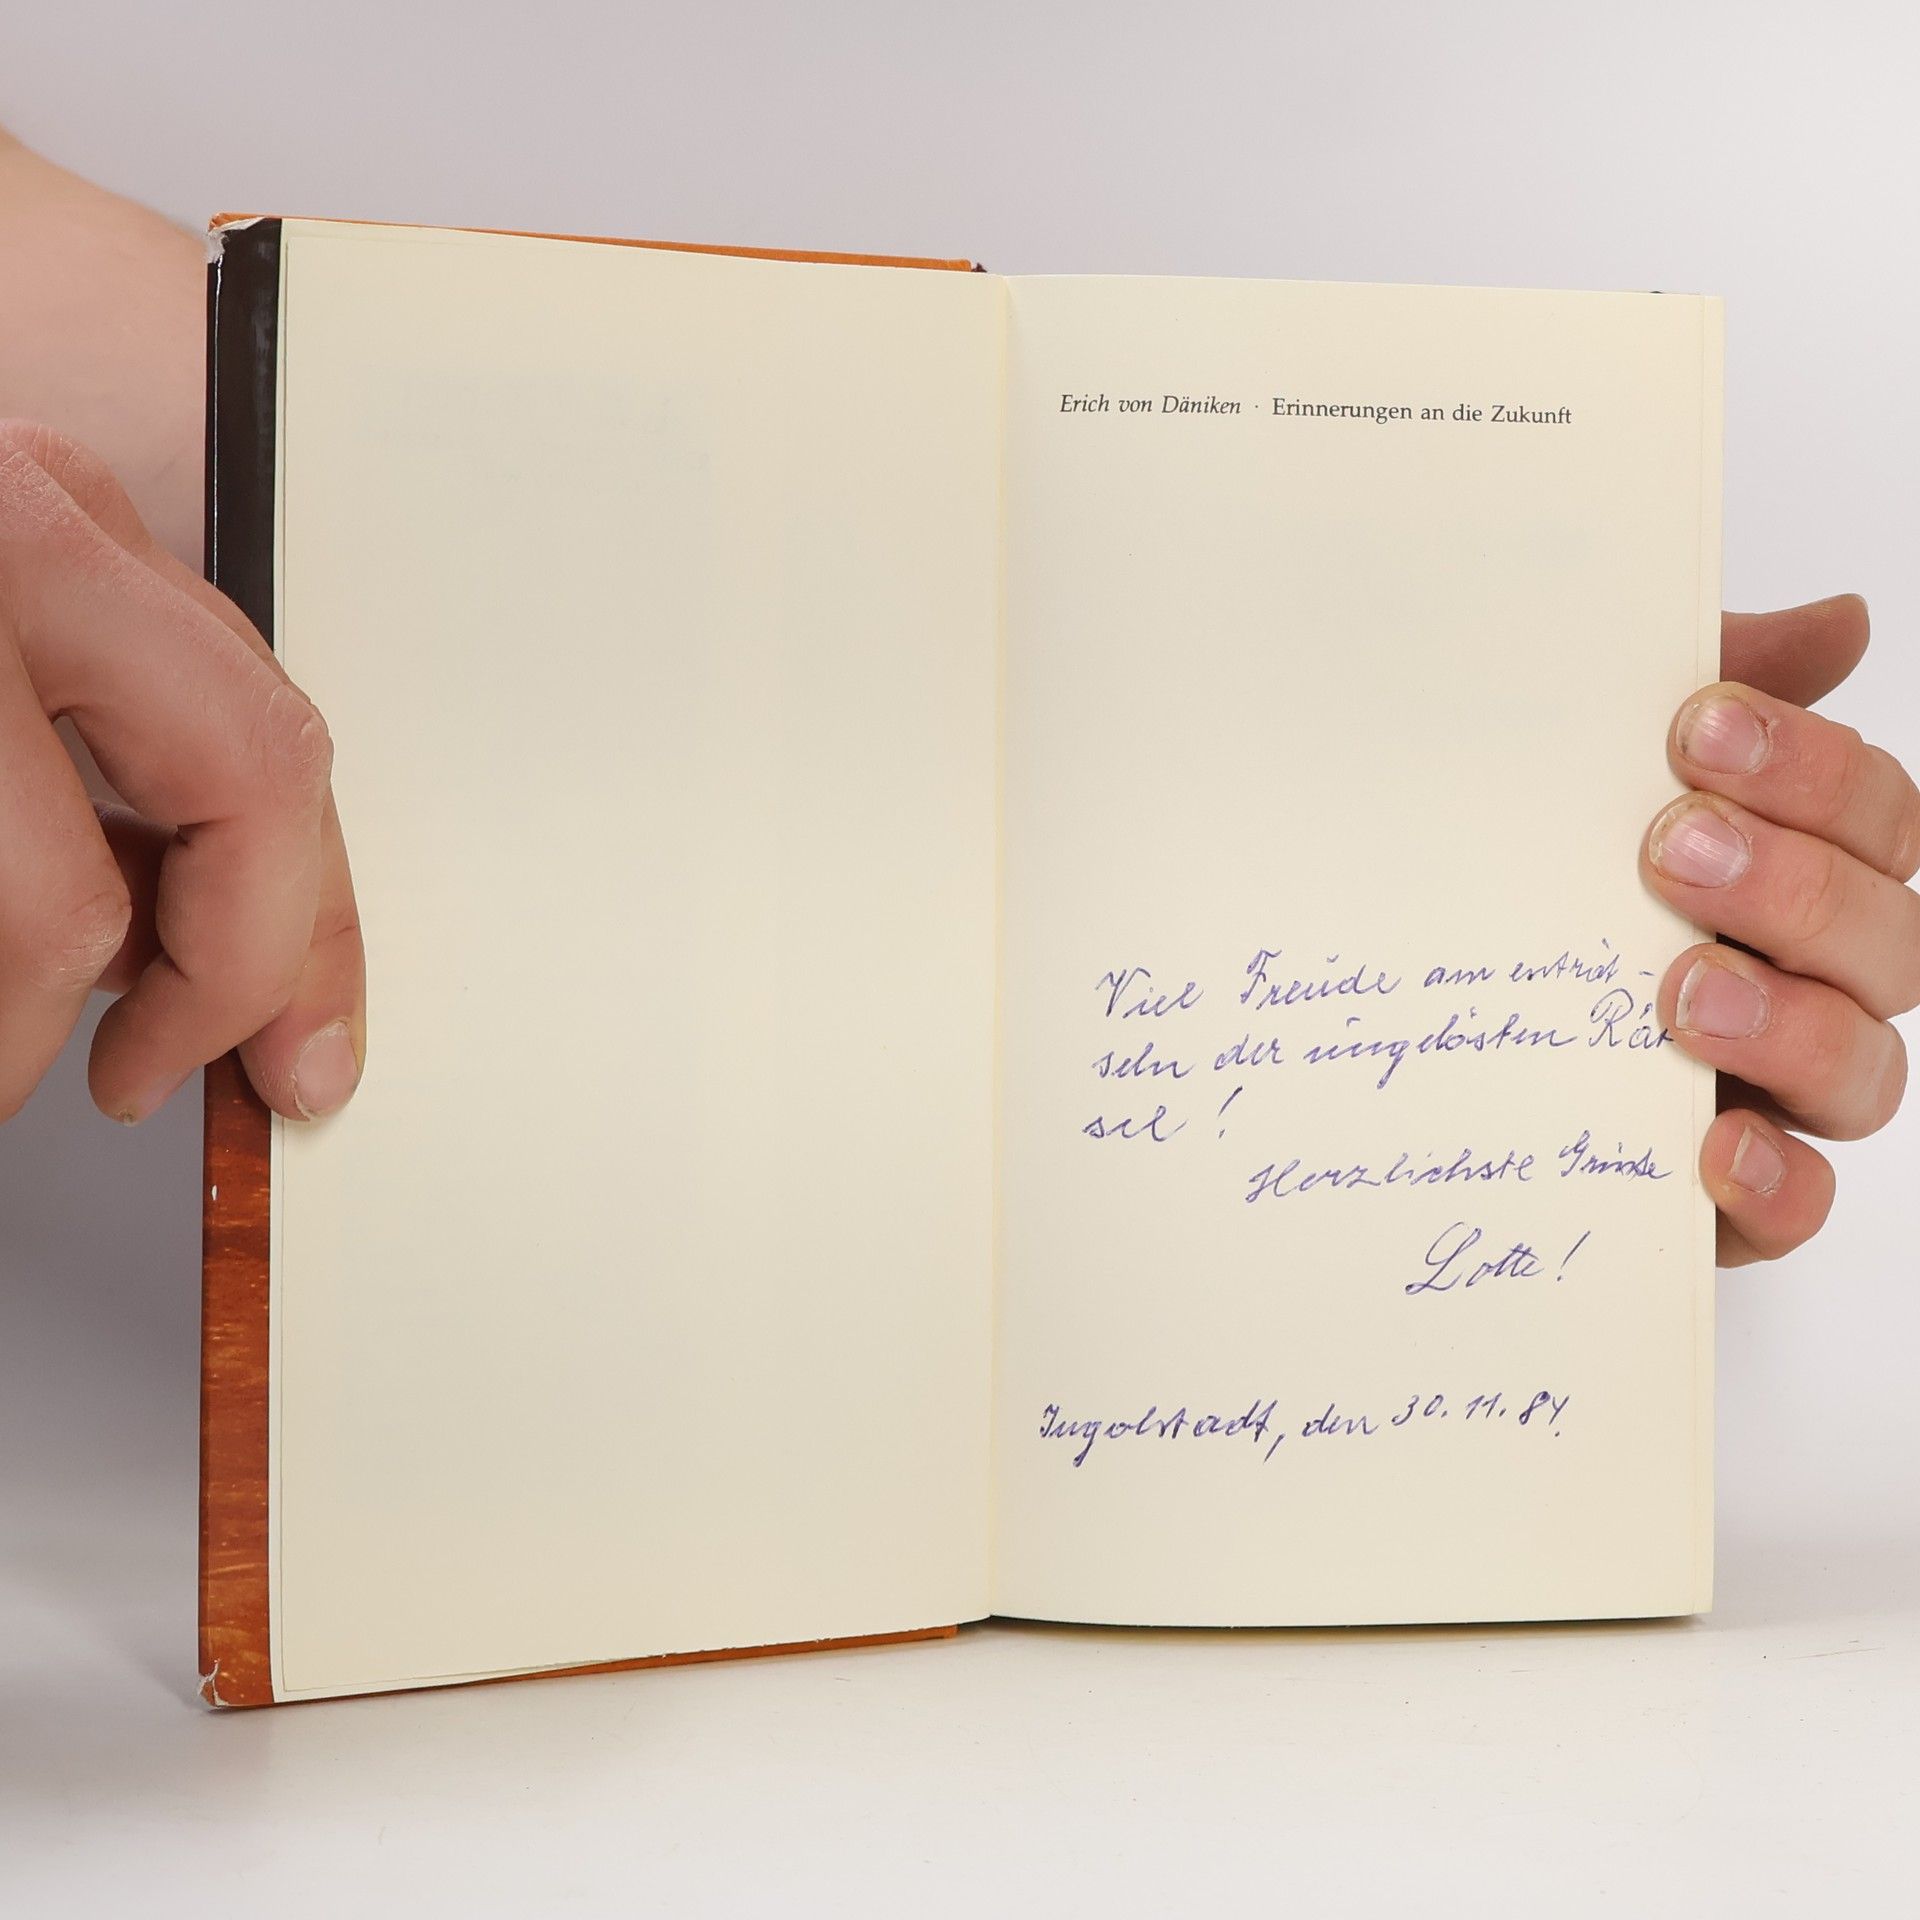 Erich von Däniken · Erinnerungen an die Zukunft
Viel Freude am enträt-
seln der ungelösten Rät
sel !
Herzlichste Grüße
Lotte !
Ingolstadt, den 30. 11. 84.